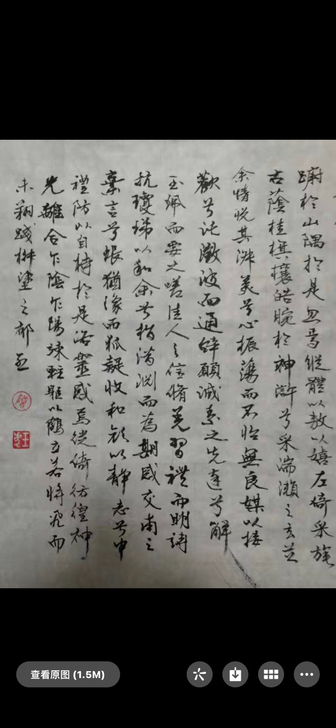 蹰於山隅於是忽焉縱體以敖以嬉左倚采旄
右蔭桂旗攘皓腕於神滸兮采湍瀨之玄芝
余情悅其淑美兮心振蕩而不怡無良媒以接
歡兮託微波而通辭願誠素之先達兮解
玉珮而要之嗟佳人之信脩羌習禮而明詩
抗瓊珶以和余兮指潛淵而為期感交甫之
棄言兮悵猶豫而狐疑收和顏以靜志兮申
禮防以自持於是洛靈感焉徙倚彷徨神
光離合乍陰乍陽竦輕軀以鶴立若將飛而
未翔踐椒塗之郁
查看原图 (1.5M)